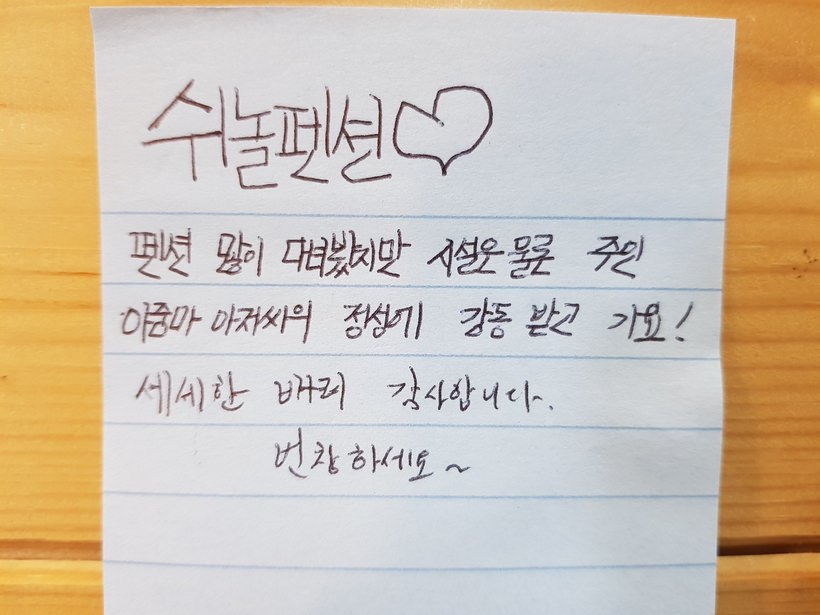 쉬놀펜션♡
펜션 많이 다녀봤지만 시설은 물론 주인
아줌마 아저씨의 정성에 감동 받고 가요!
세세한 배려 감사합니다.
번창하세요~